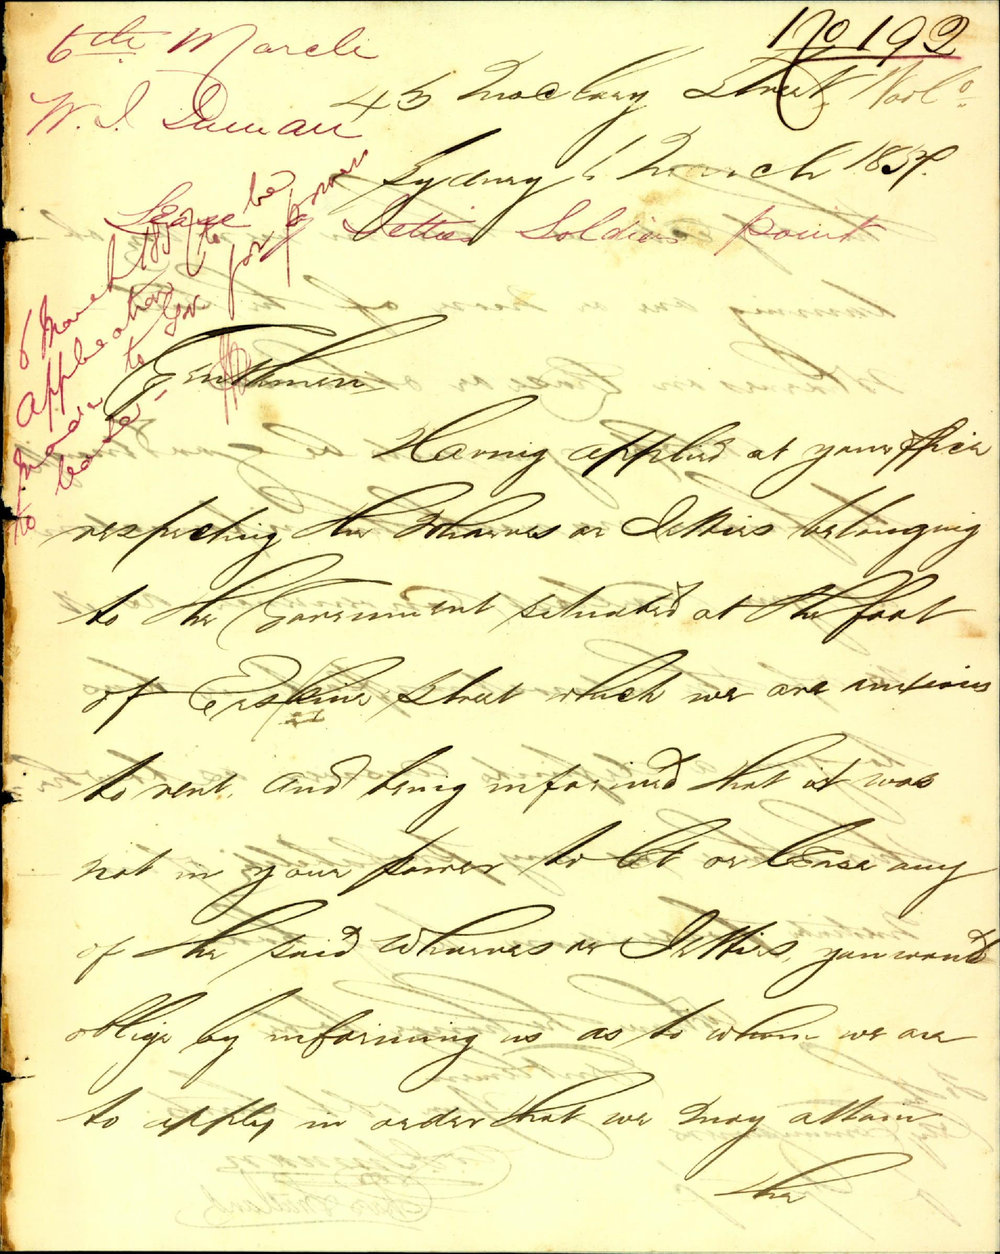 No 192
6th March
W. I. Inman
43 Street
Sydney 6 March 185
Lease of Jetties Soldiers point
6 March 185
application to be
made to Gov for power
to lease –
Gentlemen
Having applied at your Office
respecting the Wharves or Jetties belonging
to the Government situated at the foot
of Erskine Street which we are anxious
to rent, and being informed that it was
not in your power to let or lease any
of the said Wharves or Jetties, you would
oblige by informing us as to whom we are
to apply in order that we may attain
the